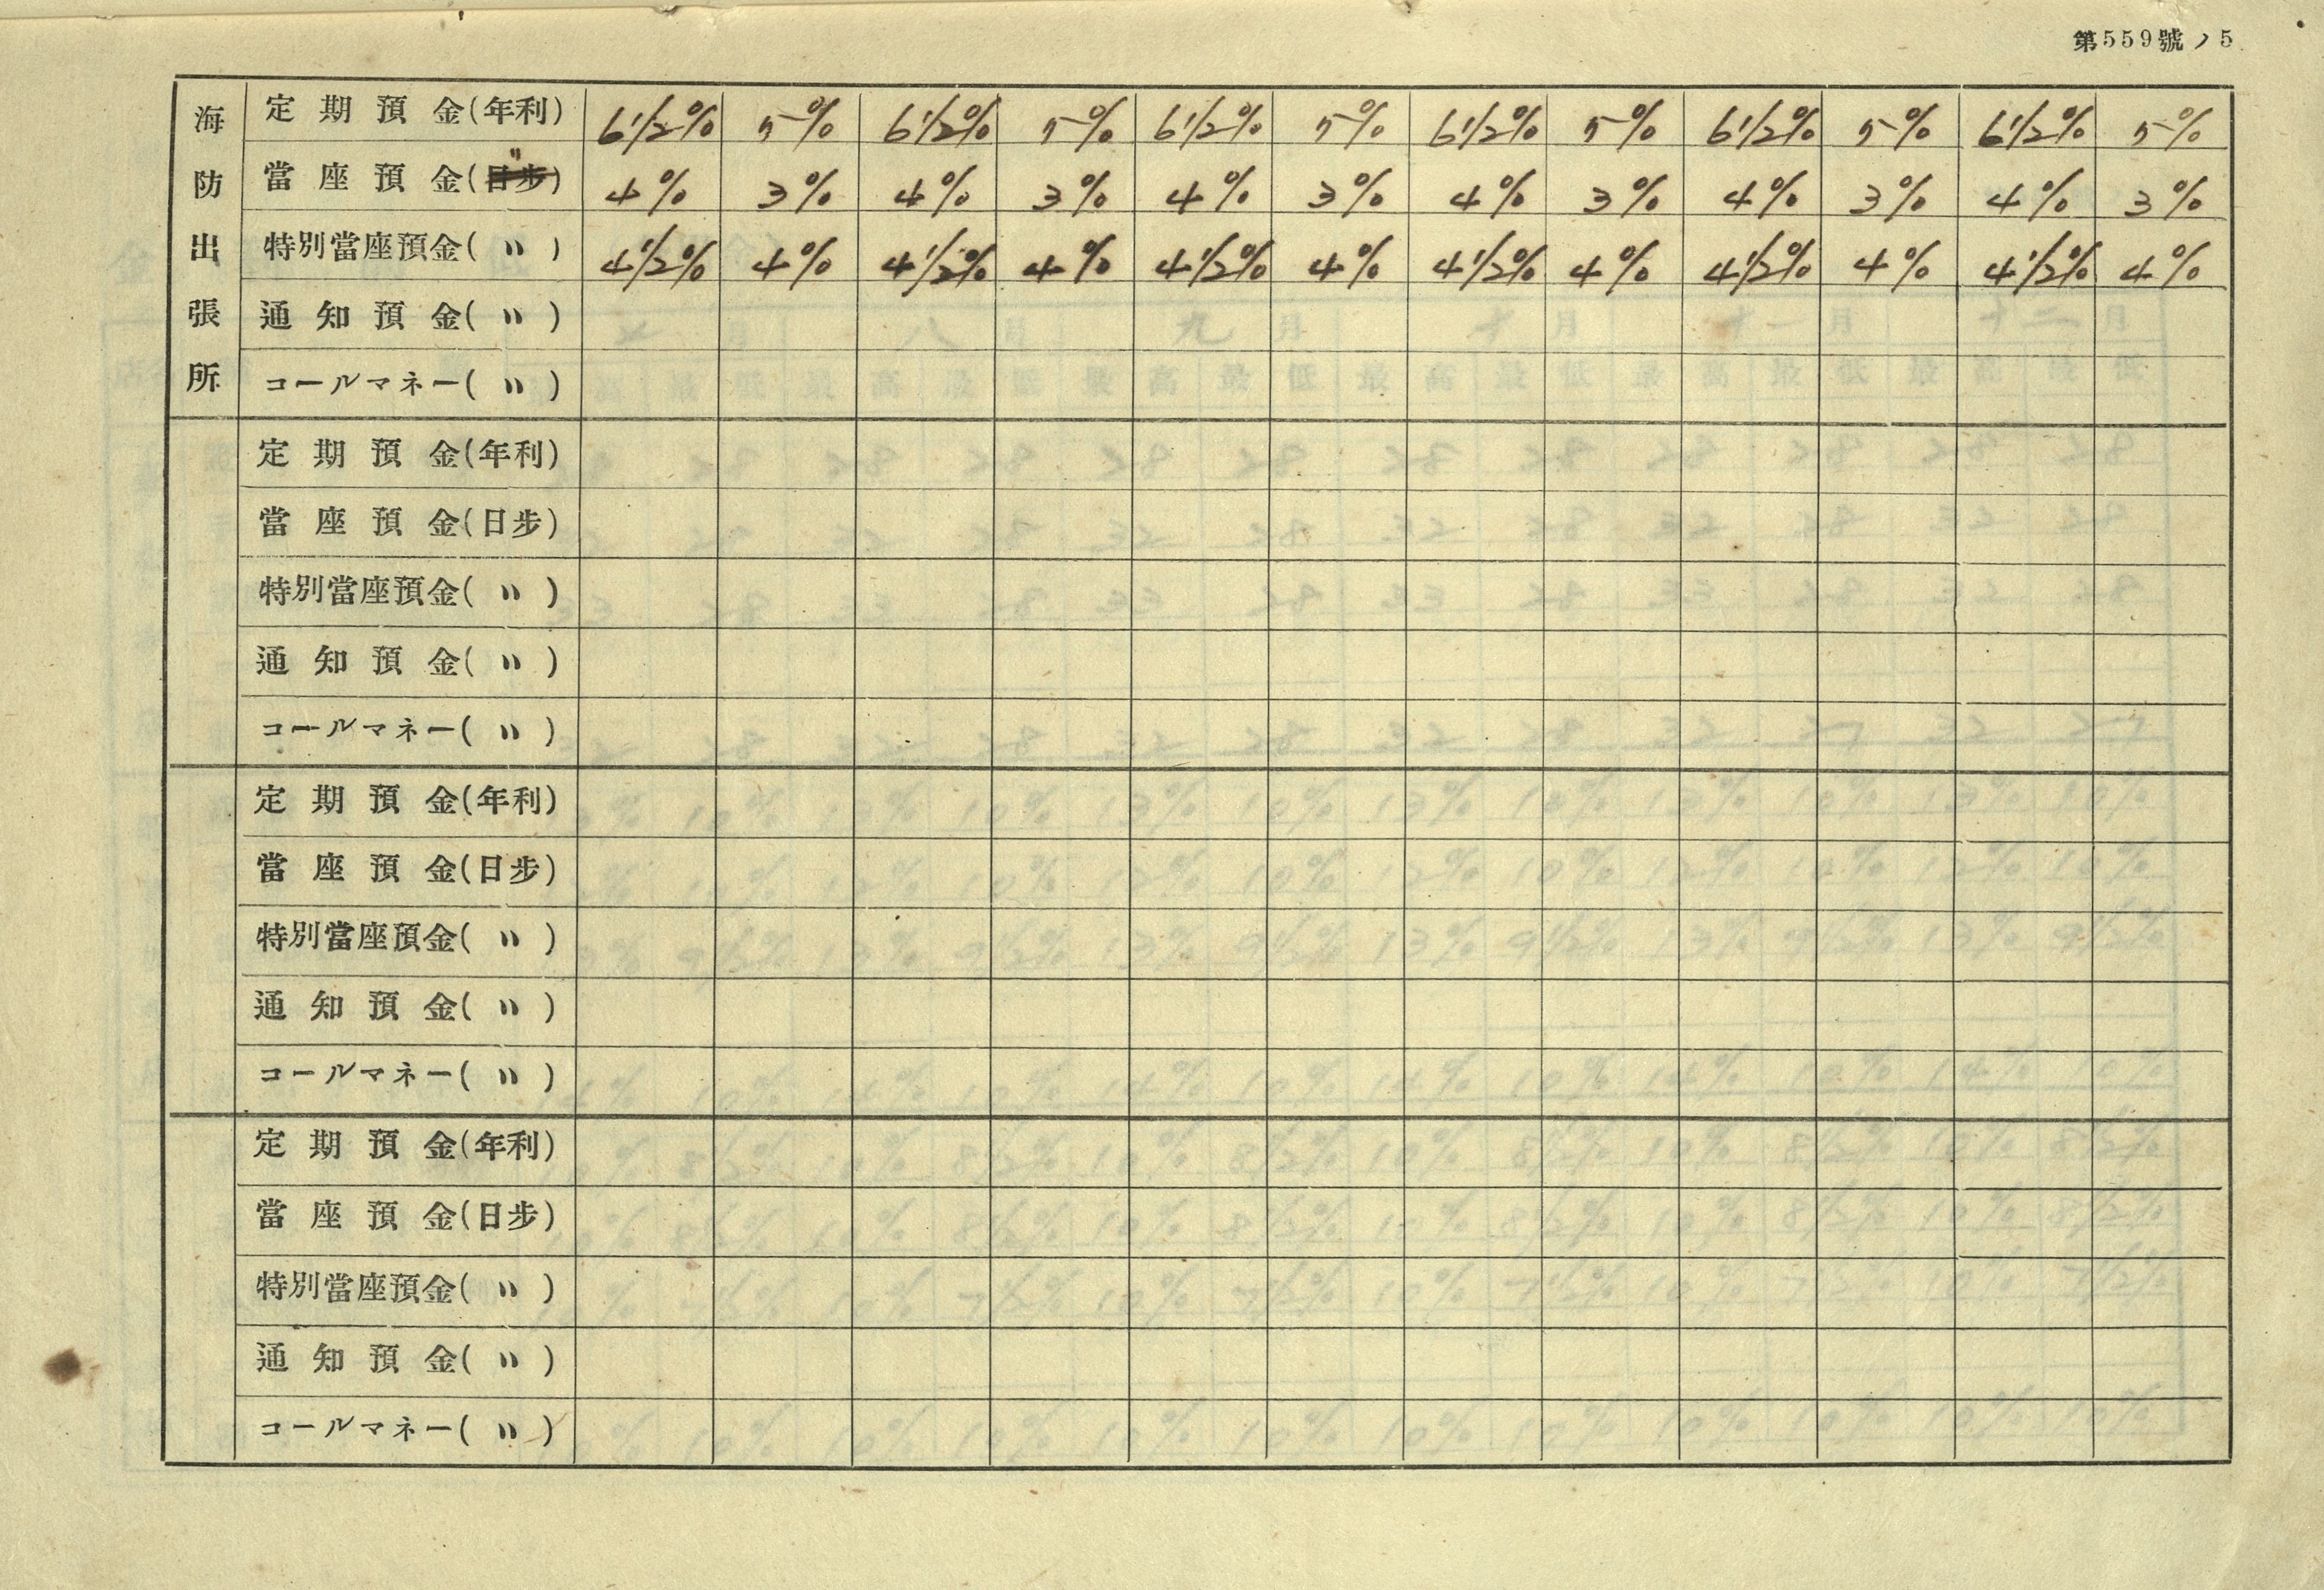 第559號ノ5
海防出張所
定期預金(年利) 6 1/2% 5% 6 1/2% 5% 6 1/2% 5% 6 1/2% 5% 6 1/2% 5% 6 1/2% 5%
當座預金(〃) 4% 3% 4% 3% 4% 3% 4% 3% 4% 3% 4% 3%
特別當座預金(〃) 4 1/2% 4% 4 1/2% 4% 4 1/2% 4% 4 1/2% 4% 4 1/2% 4% 4 1/2% 4%
通知預金(〃)
コールマネー(〃)
定期預金(年利)
當座預金(日步)
特別當座預金(〃)
通知預金(〃)
コールマネー(〃)
定期預金(年利)
當座預金(日步)
特別當座預金(〃)
通知預金(〃)
コールマネー(〃)
定期預金(年利)
當座預金(日步)
特別當座預金(〃)
通知預金(〃)
コールマネー(〃)